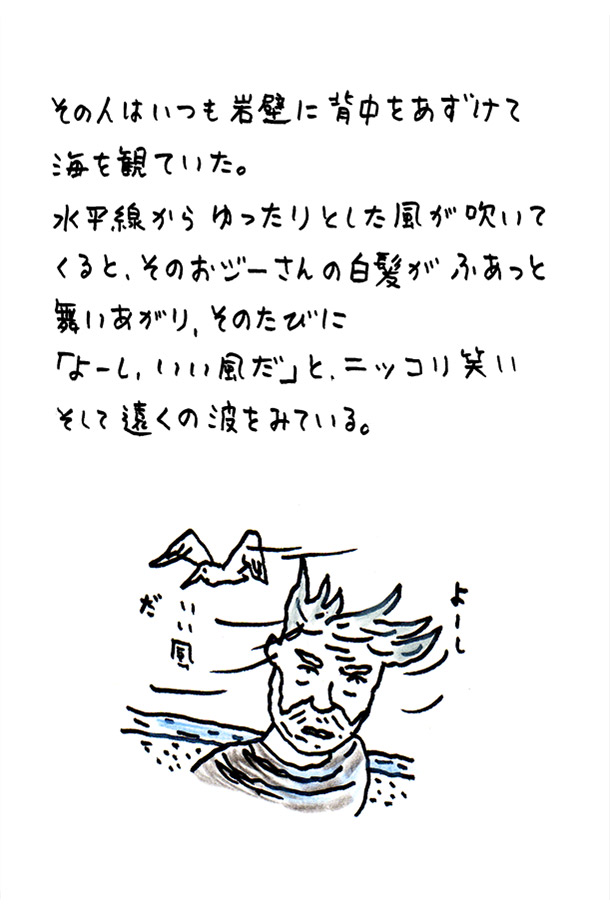 その人はいつも岩壁に背中をあずけて
海を観ていた。
水平線からゆったりとした風が吹いて
くると、そのおジーさんの白髪がふあっと
舞いあがり、そのたびに
「よーし、いい風だ」と、ニッコリ笑い
そして遠くの波をみている。
よーし
いい風
だ